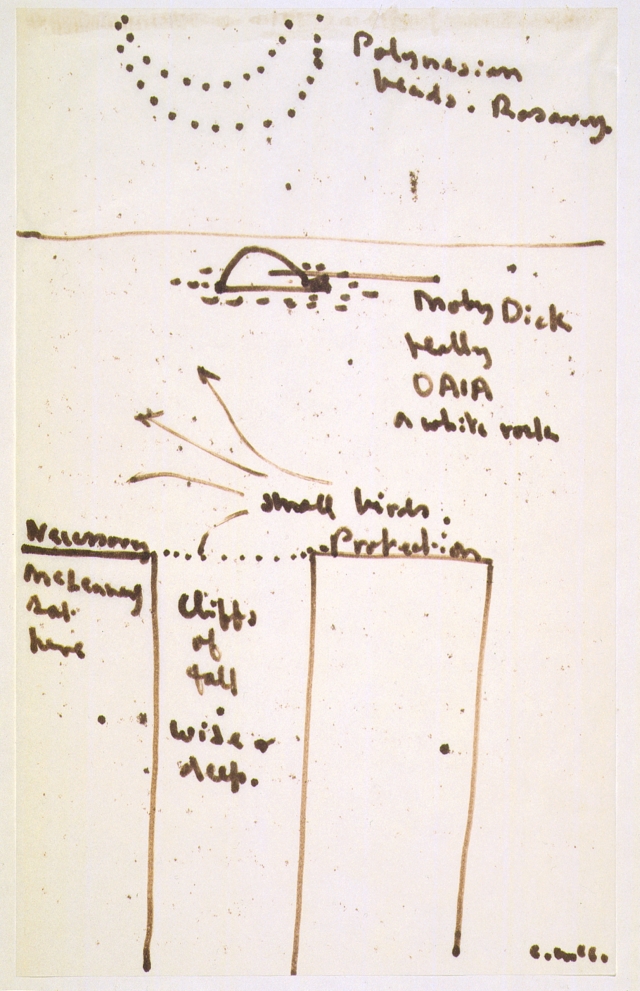 Polynesian
beads. Rosary.
Moby Dick
really
OAIA
a white rock
small birds.
Necessary
Protection
McCahon
sat
here
Cliffs
of
fall
Wide &
deep.
C. McC.